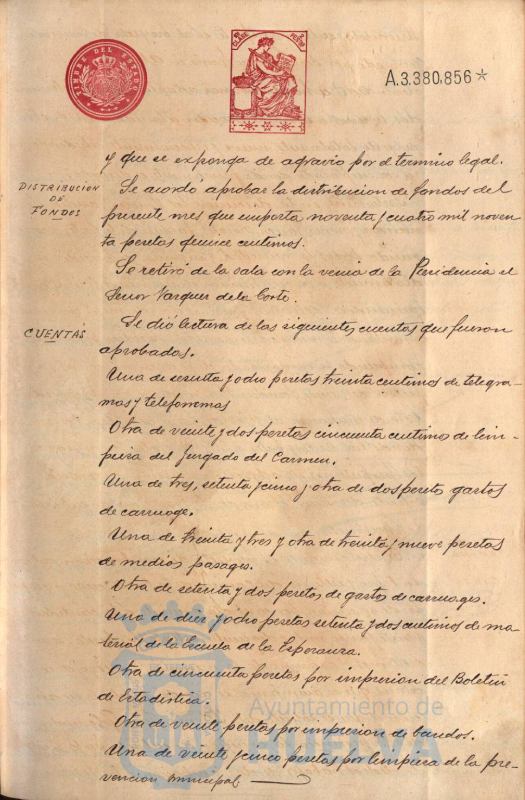 TIMBRE DEL ESTADO
CLASE
A.3.380.856*
y que se exponga de agravio por el termino legal.
DISTRIBUCION DE FONDOS
Se acordó aprobar la distribucion de fondos del
presente mes que importa noventa y cuatro mil noven-
ta pesetas quince centimos.
Se retiró de la sala con la venia de la Presidencia el
Señor Vazquez de la Corte.
CUENTAS
Se dió lectura de las siguientes cuentas que fueron
aprobadas.
Una de sesenta y ocho pesetas treinta centimos de telegra-
mas y telefonemas
Otra de veinte y dos pesetas cincuenta centimos de lim-
pieza del Juzgado del Carmen.
Una de tres, setenta y cinco y otra de dos pesetas gastos
de carruage.
Una de treinta y tres y otra de treinta y nueve pesetas
de medios pasages.
Otra de setenta y dos pesetas de gastos de carruages.
Una de diez y ocho pesetas setenta y dos centimos de ma-
terial de la Escuela de la Esperanza.
Otra de cincuenta pesetas por impresion del Boletin
de Estadistica.
Otra de veinte pesetas por impresion de bandos.
Una de veinte y cinco pesetas por limpieza de la pre-
vencion municipal.
Ayuntamiento de
HUELVA